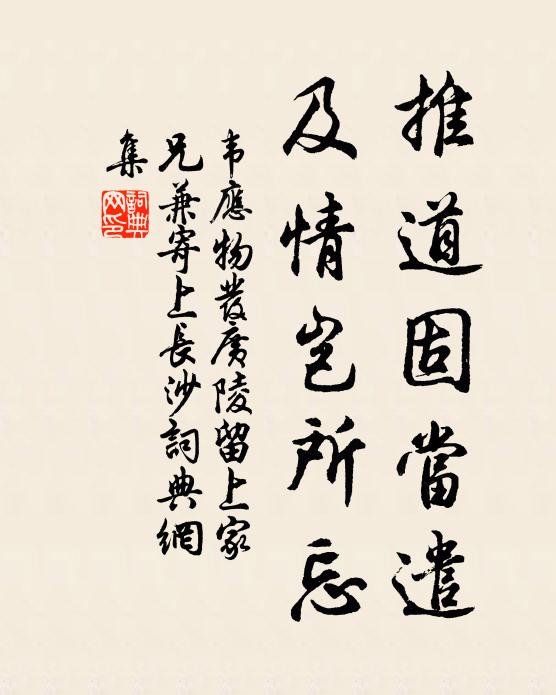 推道固當遣
及情豈所忘
韦應物發广陵留上家
兄兼寄上長沙詞典網
集
詞典
网印